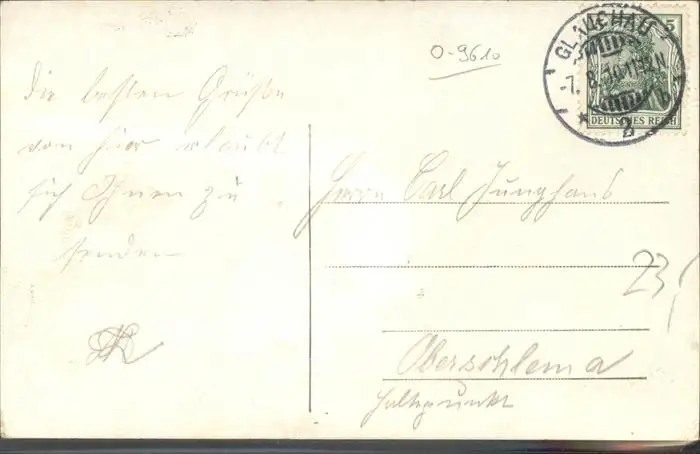 O-9610
5
GLAUCHAU
-7.8.10.11-12N.
* 2 b
DEUTSCHES REICH
Die besten Grüße
von hier erlaubt
sich Ihnen zu
senden
Herrn Carl Junghans
23
Oberschlema
Haltepunkt